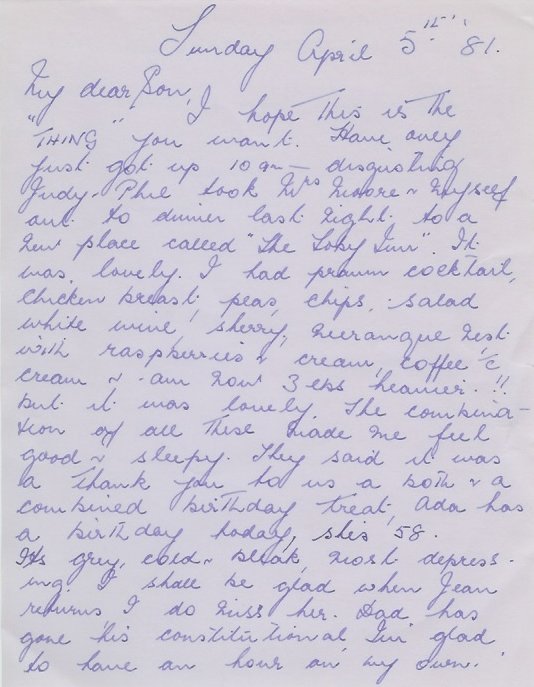 Sunday April 5th '81.
My dear Son, I hope this is the
"THING" you want. Have only
just got up 10 am — disgusting
Judy - Phil took Mrs Moore ~ myself
out to dinner last night to a
new place called "The Toby Inn". It
was lovely. I had prawn cocktail,
chicken breast, peas, chips, salad
white wine, sherry, merangue nest
with raspberries ~ cream, coffee c̄
cream ~ am now 3 lbs heavier.!!
but it was lovely. The combina-
tion of all these made me feel
good ~ sleepy. They said it was
a thank you to us a both ~ a
combined birthday treat, Ada has
a birthday today, she's 58.
Its grey, cold ~ bleak, most depress-
ing. I shall be glad when Jean
returns, I do miss her. Dad has
gone his constitutional, I'm glad
to have an hour on my own.